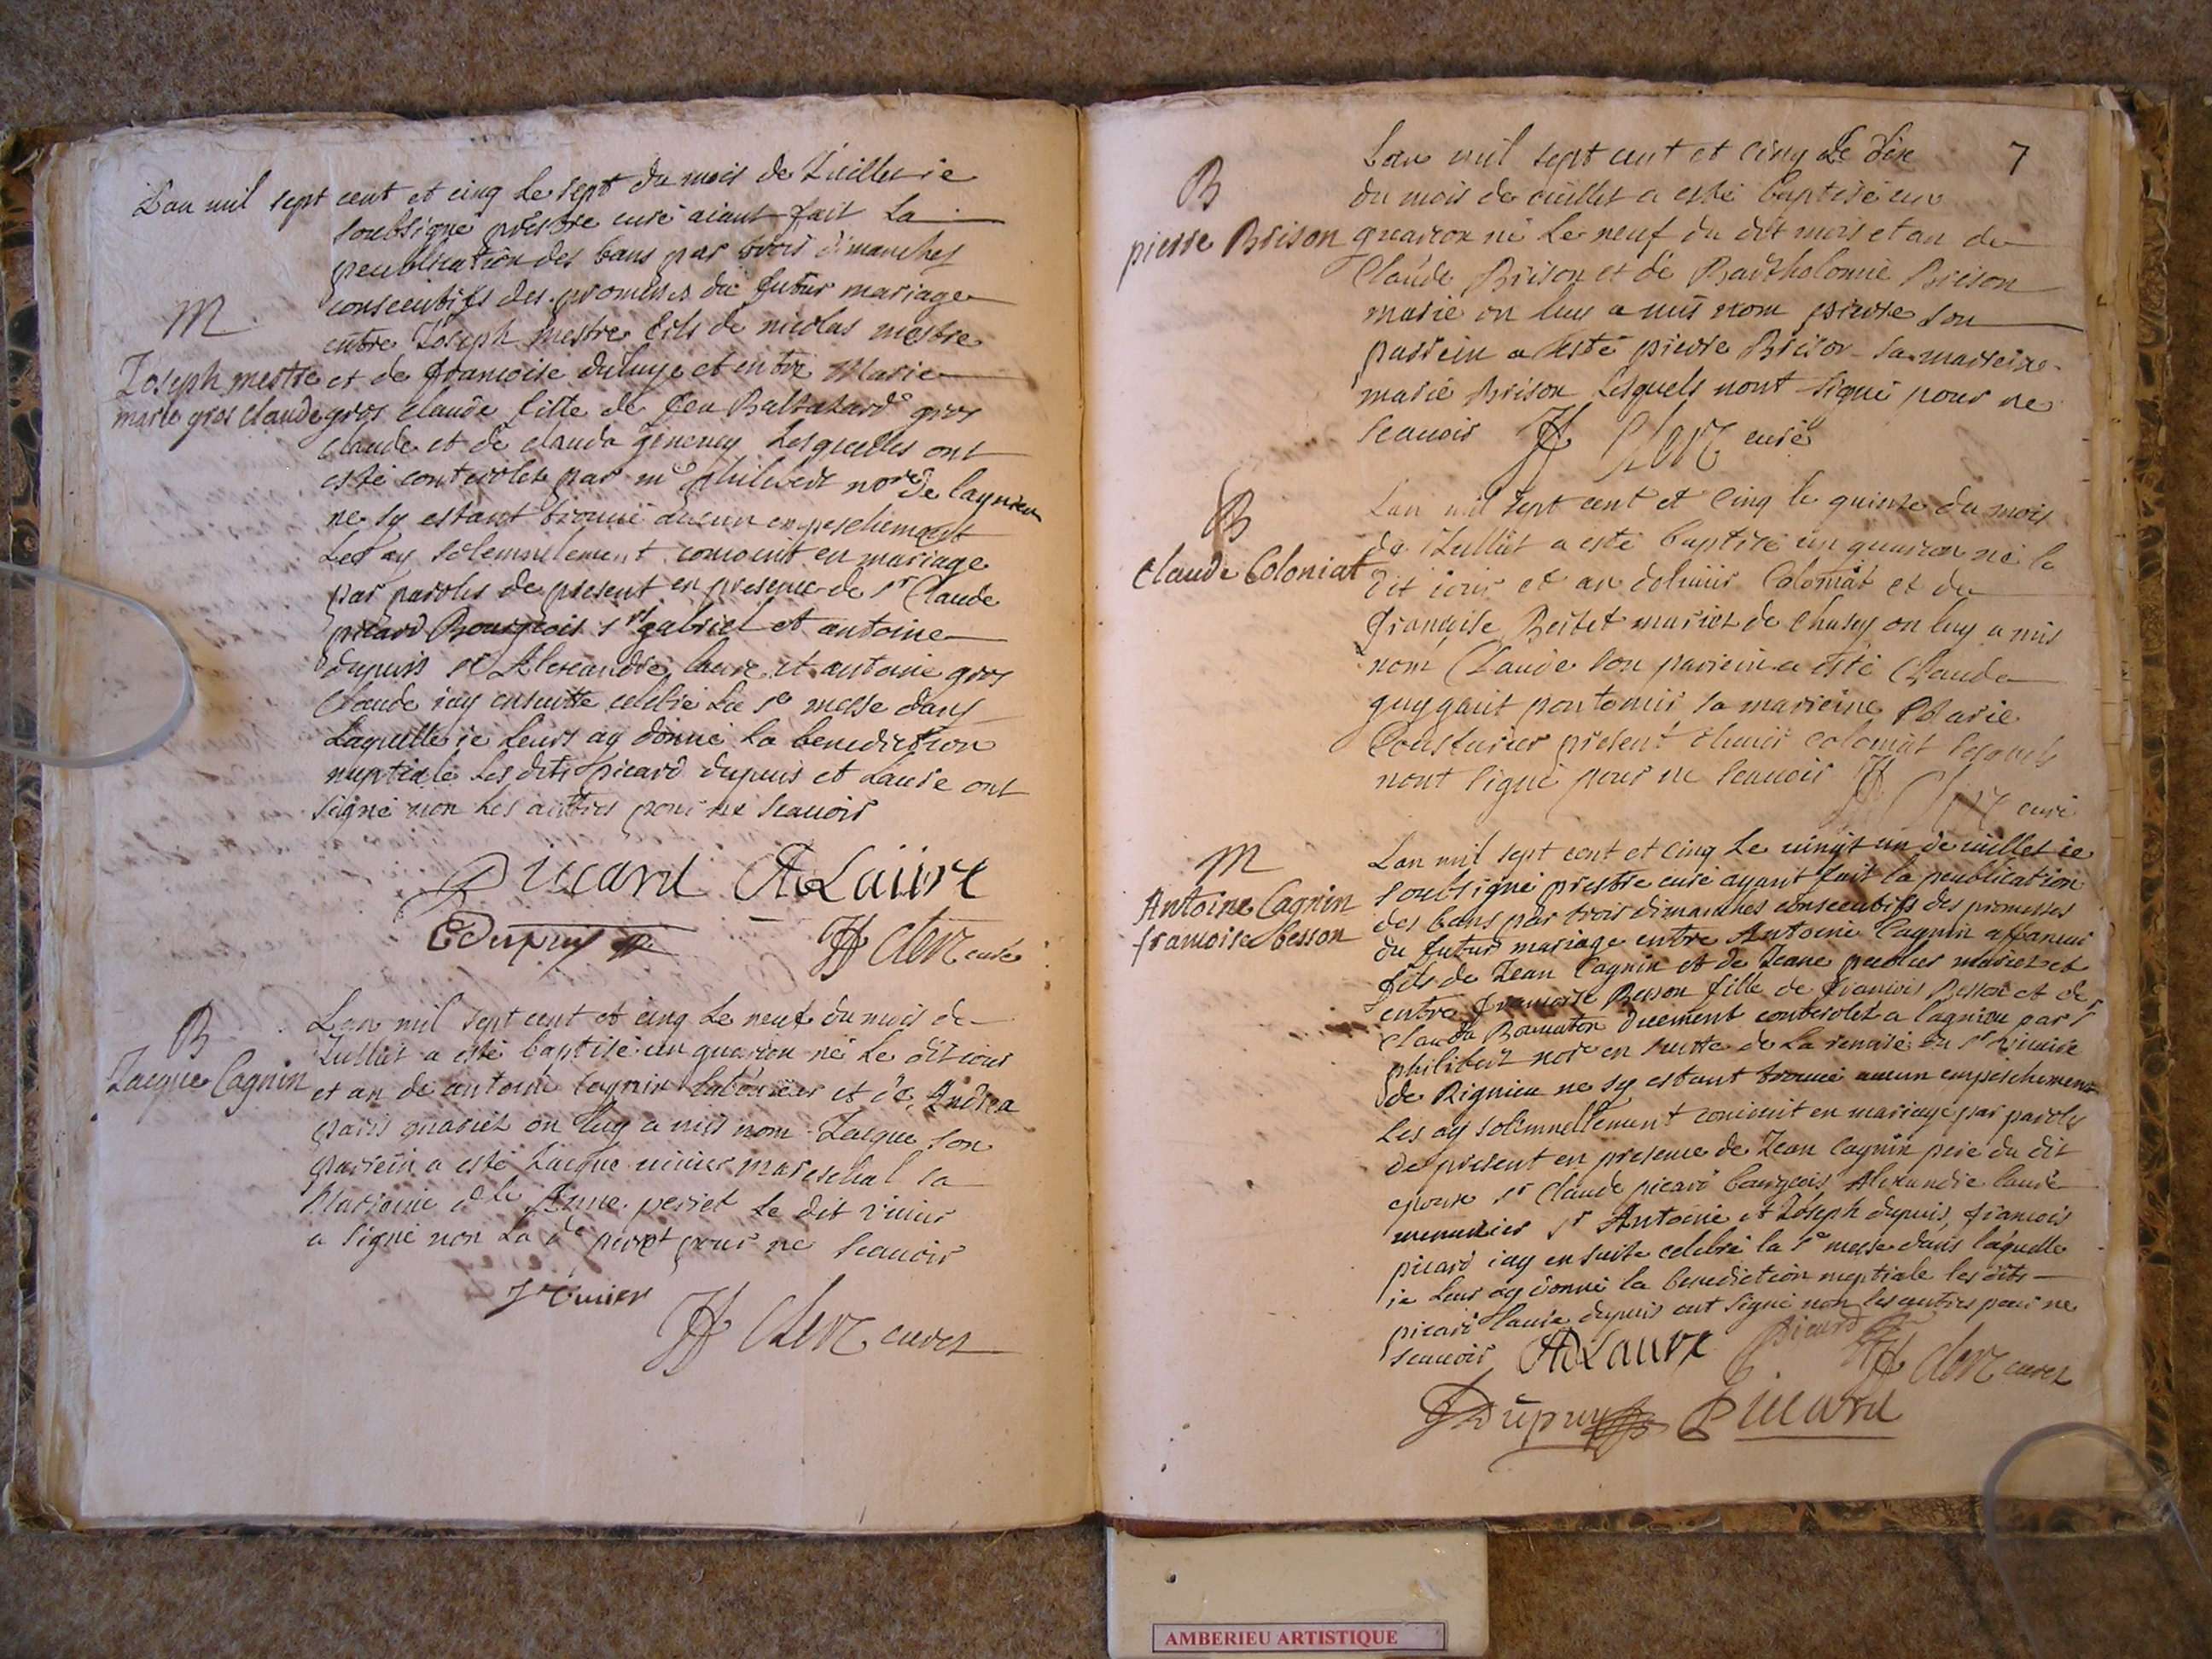 Lan mil sept cent et cinq le sept du mois de Juillet ie
soubsigné prestre curé aiant fait la
peublication des bans par trois dimanches
consecutifs des promesses du futur mariage
M
entre Joseph mestre fils de nicolas mestre
Joseph mestre
marie gros claude
et de francoise duluye et entre Marie
gros claude fille de feu Baltazard gros
claude et de clauda Lesquelles ont
esté controles par me philibert nore de lagnieu
ne sy estant trouué aucun empeschement
Les ay solemnelement conioint en mariage
par paroles de present en presence de sr Claude
picard Bourgeois srs gabriel et antoine
dupuis sr Alexandre laure et antoine gros
Claude iay ensuitte celebré la ste messe dans
Laquelle ie leurs ay donné la benediction
nuptiale les dits picard dupuis et Laure ont
signé non les autres pour ne scauoir
Picard A Laure
Dupuy
Clerc curé
B
Jacque Cagnin
Lan mil sept cent et cinq le neuf du mois de
Julliet a esté baptisé un guarcon né le dit iour
et an de antoine cagnin laboureur et de Andrea
paris mariez on luy a mis nom Jacque son
parrein a esté Jacque uiuier mareschal sa
Marreine dlle Anne perret le dit viuier
a signé non la de perret pour ne scauoir
J Viuier
Clerc curez
7
Lan mil sept cent et cinq le dix
B
pierre Brison
du mois de iuillet a esté baptisé un
guarcon né le neuf du dit mois et an de
Claude Brison et de Bartholomie Brison
marié on luy a mis nom pierre son
parrein a esté pierre Brison sa marreine
marie Brison lesquels nont signé pour ne
scauoir Clerc curé
B
Claude Coloniat
Lan mil sept cent et cinq le quinze du mois
de Julliet a esté baptisé un guarcon né le
dit iour et an Coloniat et de
françoise Bertet mariez de Chasey on luy a mis
nom Claude son parrein a esté Claude
sa marreine Marie
present coloniat lesquels
nont signé pour ne scauoir Clerc curé
M
Antoine Cagnin
francoise besson
Lan mil sept cent et cinq le uingt un de iuillet ie
soubsigné prestre curé ayant fait la peublication
des bans par trois dimanches consecutifs des promesses
du futur mariage entre Antoine Cagnin
fils de Jean Cagnin et de Jeane mariez et
entre francoise Besson fille de francois Besson et de
Clauda duement controlés a lagnieu par sr
philibert nore en suitte de la remise du sr
de Rignieu ne sy estant trouué aucun empeschement
Les ay solemnellement conioint en mariage par paroles
de present en presence de Jean Cagnin pere du dit
epoux sr Claude picard bourgeois Alexandre laure
menusier sr Antoine et Joseph dupuis francois
picard iay en suite celebré la ste messe dans laquelle
ie leurs ay donné la benediction nuptiale les dits
picard laure dupuis ont signé non les autres pour ne
scauoir A Laure Picard Clerc curez
J Dupuy Picard
AMBERIEU ARTISTIQUE